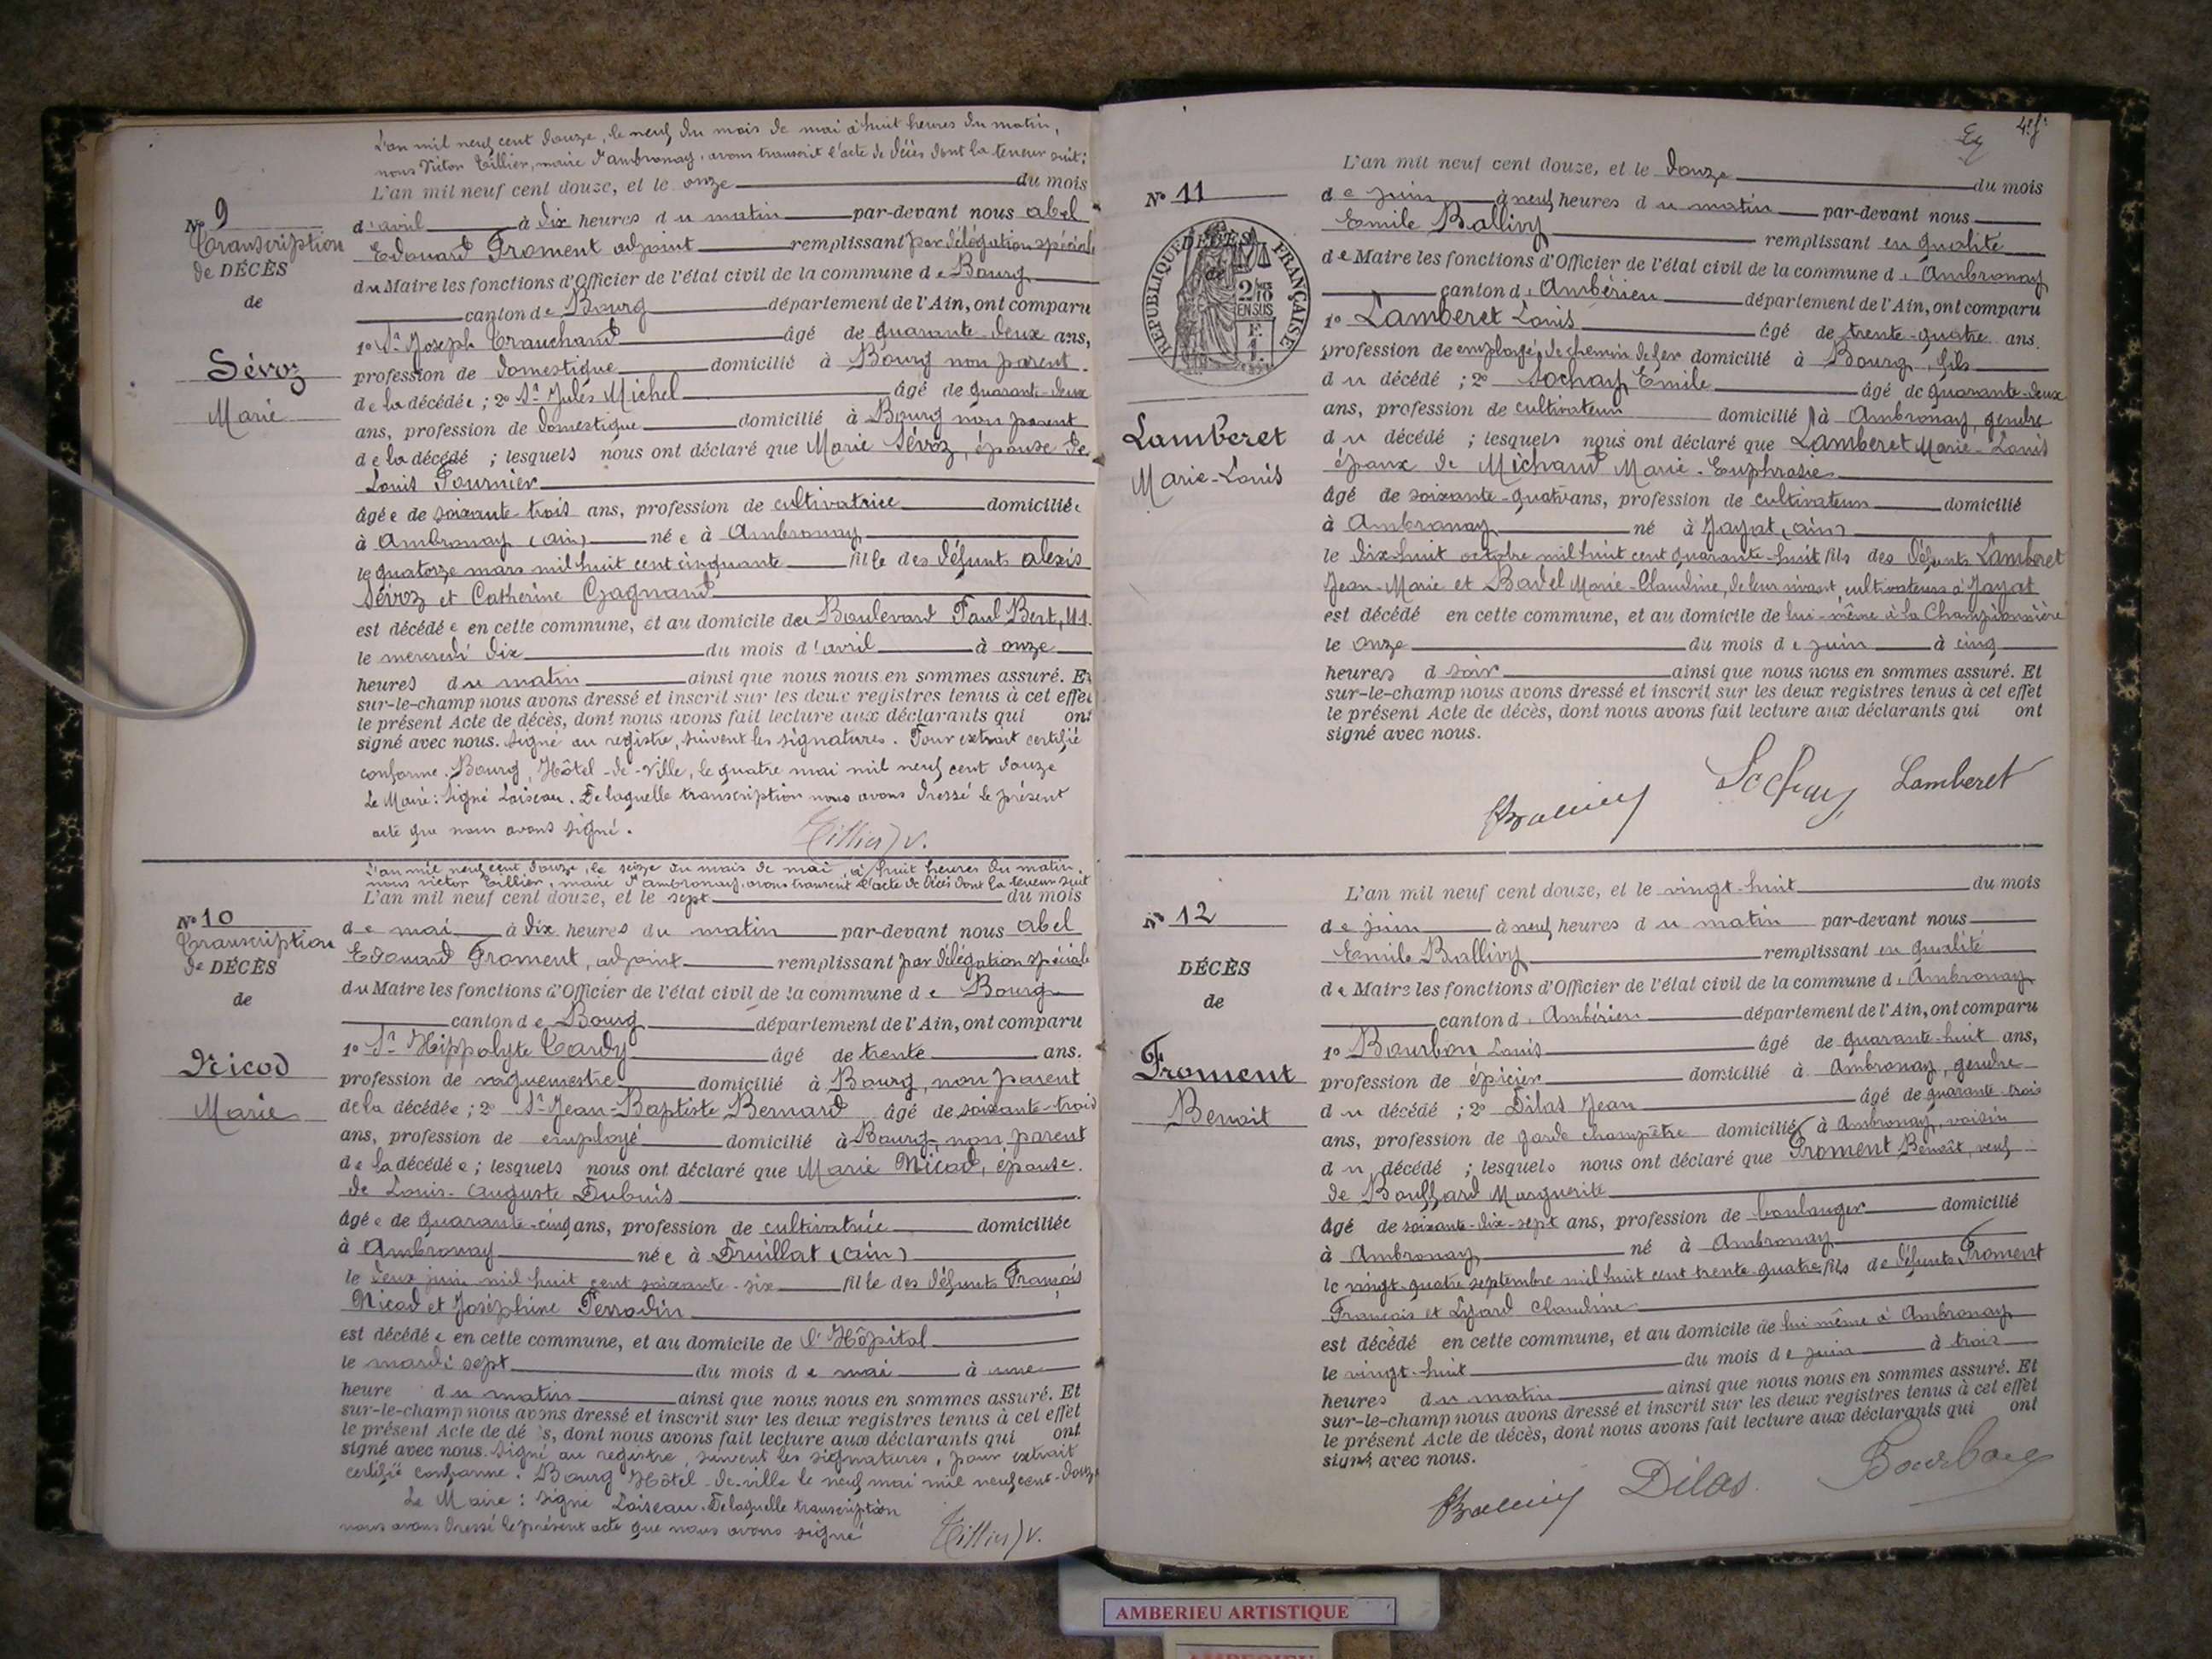 L'an mil neuf cent douze, le neuf du mois de mai à huit heures du matin,
nous Victor Tillier, maire d'Ambronay, avons transcrit l'acte de décès dont la teneur suit :
L'an mil neuf cent douze, et le onze du mois
N° 9
d'avril à dix heures du matin par-devant nous Abel
Transcription
Edouard Froment adjoint remplissant par délégation spéciale
de DÉCÈS
du Maire les fonctions d'Officier de l'état civil de la commune de Bourg
de
canton de Bourg département de l'Ain, ont comparu
1° Sr Joseph Trauchand âgé de quarante-deux ans,
Sévoz
profession de domestique domicilié à Bourg non parent
Marie
de la décédée ; 2° Sr Jules Michel âgé de quarante-deux
ans, profession de domestique domicilié à Bourg non parent
de la décédé ; lesquels nous ont déclaré que Marie Sévoz, épouse de
Louis Fournier
âgée de soixante trois ans, profession de cultivatrice domiciliée
à Ambronay (Ain) née à Ambronay
le quatorze mars mil huit cent cinquante fille des défunts Alexis
Sévoz et Catherine Gagnand
est décédée en cette commune, et au domicile du Boulevard Paul Bert, 11.
le mercredi dix du mois d'avril à onze
heures du matin ainsi que nous nous en sommes assuré. Et
sur-le-champ nous avons dressé et inscrit sur les deux registres tenus à cet effet
le présent Acte de décès, dont nous avons fait lecture aux déclarants qui ont
signé avec nous. Signé au registre, suivent les signatures. Pour extrait certifié
conforme. Bourg, Hôtel-de-Ville, le quatre mai mil neuf cent douze
Le Maire : Signé Loiseau. De laquelle transcription nous avons dressé le présent
acte que nous avons signé.
Tillier V.
L'an mil neuf cent douze, le seize du mois de mai, à huit heures du matin
nous Victor Tillier, maire d'Ambronay, avons transcrit l'acte de décès dont la teneur suit
L'an mil neuf cent douze, et le sept du mois
N° 10
de mai à dix heures du matin par-devant nous Abel
Transcription
Edouard Froment, adjoint remplissant par délégation spéciale
de DÉCÈS
du Maire les fonctions d'Officier de l'état civil de la commune de Bourg
de
canton de Bourg département de l'Ain, ont comparu
1° Sr Hippolyte Cardy âgé de trente ans.
Nicod
profession de vaguemestre domicilié à Bourg, non parent
Marie
de la décédée ; 2° Sr Jean-Baptiste Bernard âgé de soixante-trois
ans, profession de employé domicilié à Bourg, non parent
de la décédée ; lesquels nous ont déclaré que Marie Nicod, épouse
de Louis-Auguste Dubuis
âgée de quarante-cinq ans, profession de cultivatrice domiciliée
à Ambronay née à Druillat (Ain)
le deux juin mil huit cent soixante-six fille des défunts François
Nicod et Joséphine Perrodin
est décédée en cette commune, et au domicile de l'Hôpital
le mardi sept du mois de mai à une
heure du matin ainsi que nous nous en sommes assuré. Et
sur-le-champ nous avons dressé et inscrit sur les deux registres tenus à cet effet
le présent Acte de dé s, dont nous avons fait lecture aux déclarants qui ont
signé avec nous. Signé au registre, suivent les signatures, pour extrait
certifié conforme. Bourg Hôtel-de-ville le neuf mai mil neuf cent-douze
Le Maire : Signé Loiseau. De laquelle transcription
nous avons dressé le présent acte que nous avons signé
Tillier V.
L'an mil neuf cent douze, et le douze du mois
N° 11
de juin à neuf heures du matin par-devant nous
Emile Ballivy remplissant en qualité
de Maire les fonctions d'Officier de l'état civil de la commune d'Ambronay
canton d'Ambérieu département de l'Ain, ont comparu
DÉCÈS
de
RÉPUBLIQUE FRANÇAISE
2/10
EN SUS
1° Lamberet Louis âgé de trente-quatre ans.
profession de employé de chemin de fer domicilié à Bourg, fils
du décédé ; 2° Sochay Emile âgé de quarante-deux
ans, profession de cultivateur domicilié à Ambronay, gendre
Lamberet
Marie-Louis
du décédé ; lesquels nous ont déclaré que Lamberet Marie-Louis
époux de Michaud Marie-Euphrasie
âgé de soixante-quatre ans, profession de cultivateur domicilié
à Ambronay né à Jayat (Ain)
le dix-huit octobre mil huit cent quarante-huit fils des défunts Lamberet
Jean-Marie et Badel Marie-Claudine, de leur vivant cultivateurs à Jayat
est décédé en cette commune, et au domicile de lui-même à la Championnière
le onze du mois de juin à cinq
heures d soir ainsi que nous nous en sommes assuré. Et
sur-le-champ nous avons dressé et inscrit sur les deux registres tenus à cet effet
le présent Acte de décès, dont nous avons fait lecture aux déclarants qui ont
signé avec nous.
Ballivy Sochay Lamberet
L'an mil neuf cent douze, et le vingt-huit du mois
N° 12
de juin à neuf heures du matin par-devant nous
Emile Ballivy remplissant en qualité
DÉCÈS
de Maire les fonctions d'Officier de l'état civil de la commune d'Ambronay
de
canton d'Ambérieu département de l'Ain, ont comparu
1° Bourbon Louis âgé de quarante-huit ans,
Froment
profession de épicier domicilié à Ambronay, gendre
Benoit
du décédé ; 2° Dilas Jean âgé de quarante-trois
ans, profession de garde champêtre domicilié à Ambronay, voisin
du décédé ; lesquels nous ont déclaré que Froment Benoît, veuf
de Bouffard Marguerite
âgé de soixante-dix-sept ans, profession de boulanger domicilié
à Ambronay né à Ambronay
le vingt-quatre septembre mil huit cent trente-quatre fils de défunts Froment
François et Lyard Claudine
est décédé en cette commune, et au domicile de lui même à Ambronay
le vingt-huit du mois de juin à trois
heures du matin ainsi que nous nous en sommes assuré. Et
sur-le-champ nous avons dressé et inscrit sur les deux registres tenus à cet effet
le présent Acte de décès, dont nous avons fait lecture aux déclarants qui ont
signé avec nous.
Ballivy Dilas Bourbon
AMBERIEU ARTISTIQUE
AMBERIEU